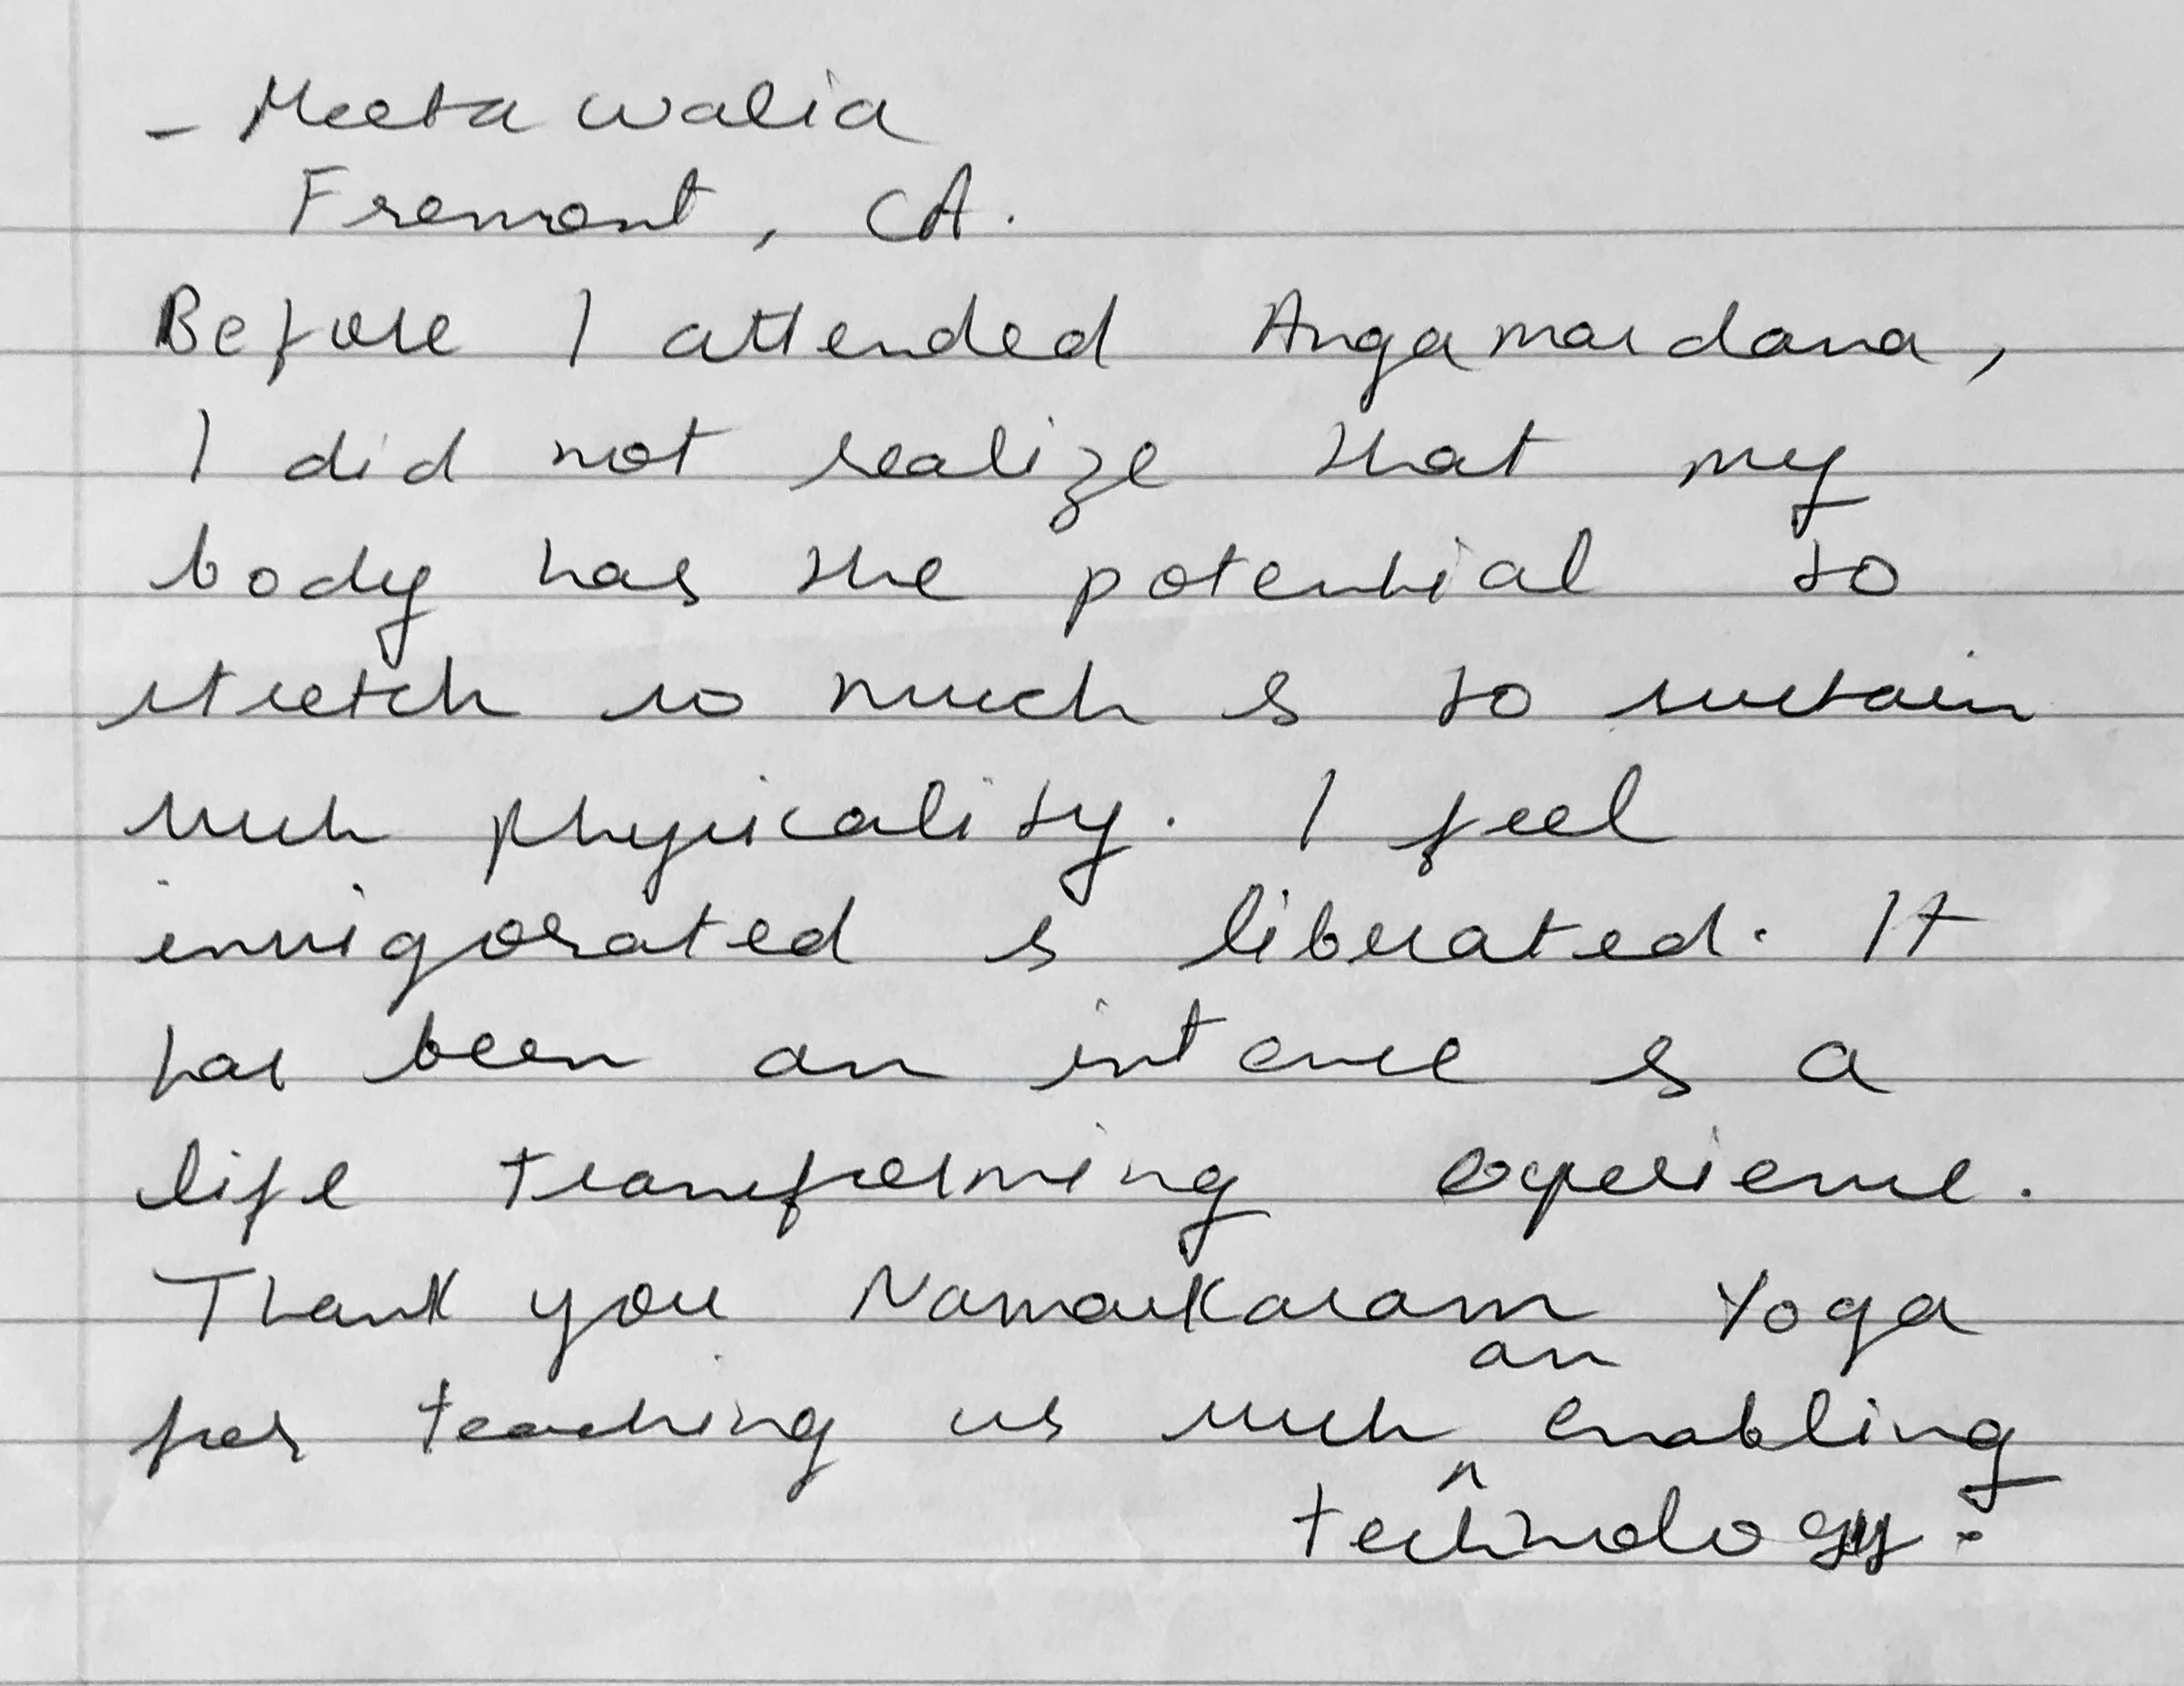 - Meeta Walia
Fremont, CA.
Before I attended Angamardana,
I did not realize that my
body has the potential to
stretch so much & to sustain
such physicality. I feel
invigorated & liberated. It
has been an intense & a
life transforming experience.
Thank you Namaskaram Yoga
for teaching us such an enabling
technology.